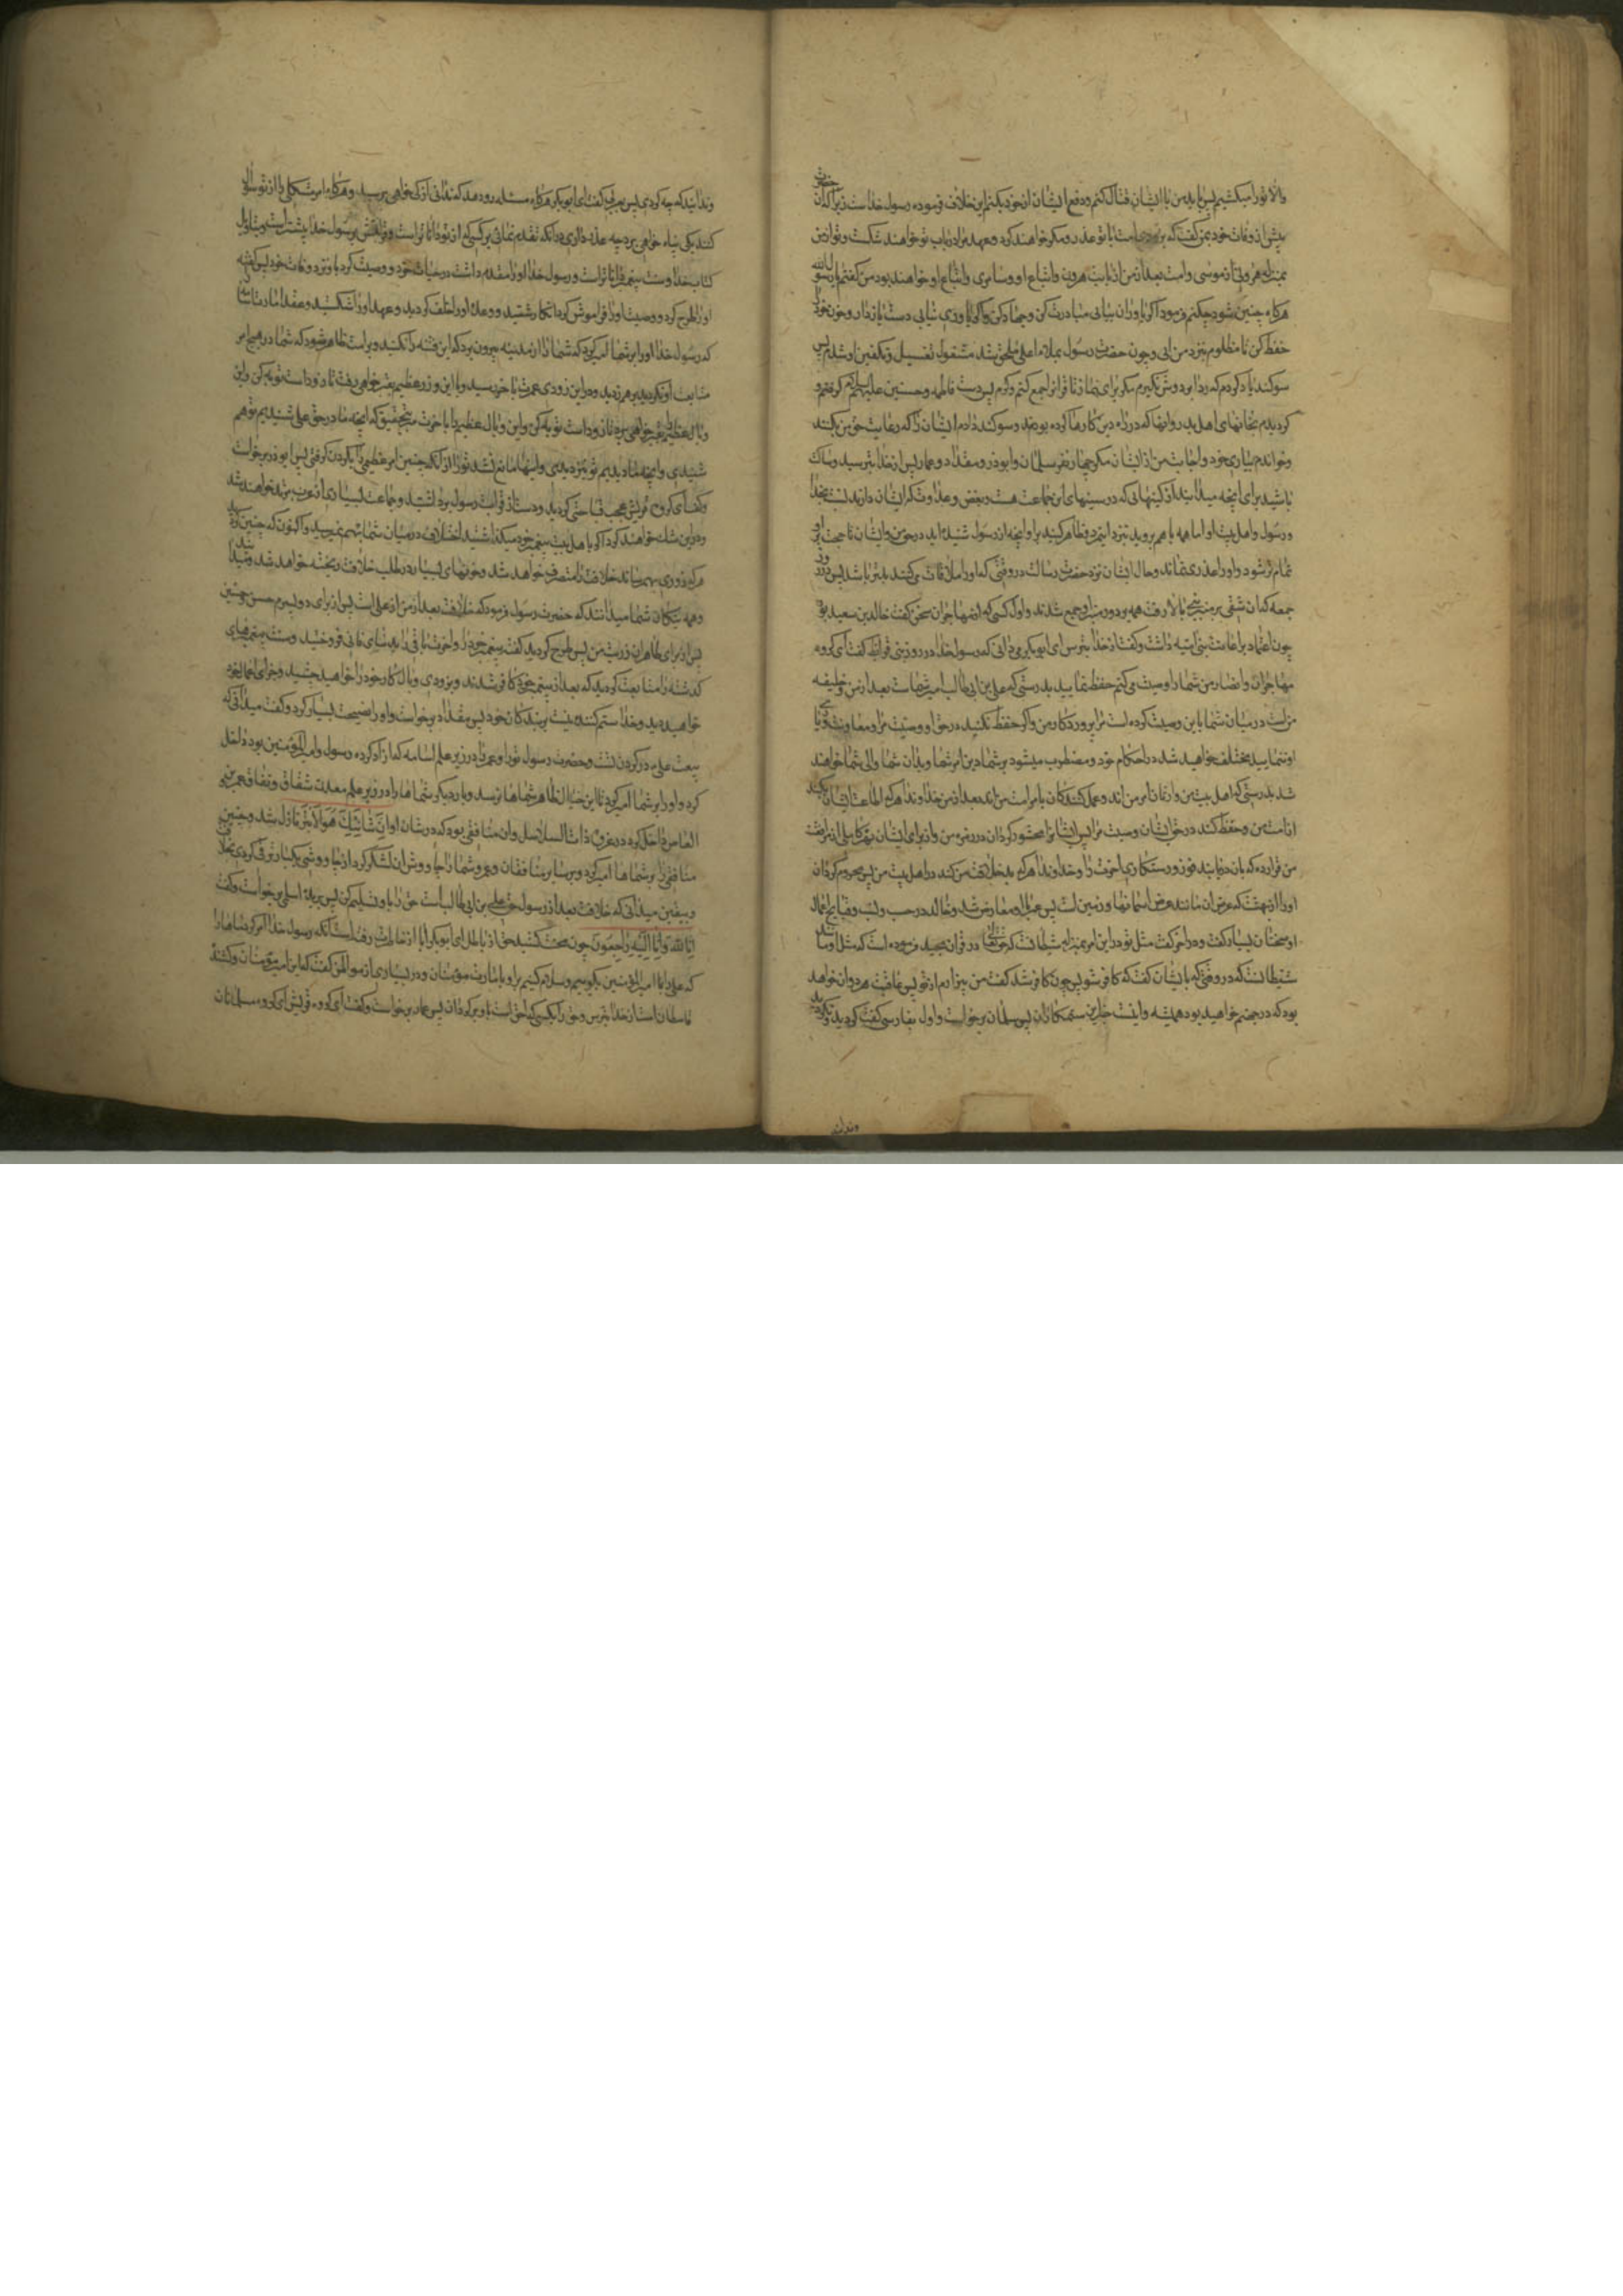 والا تو را میکشیم پس باید من با ایشان قتال کنم و دفع ایشان از خود بکنم این خلاف فرموده رسول خداست زیرا که آن حضرت
پیش از وفات خود بمن گفت که بزودی امت با تو غدر و مکر خواهند کرد و عهد مرا در باب تو خواهند شکست و تو از من
بمنزله هرونی از موسی و امت بعد از من از بابت هرون و اتباع او و سامری و اتباع او خواهند بود من گفتم یا رسول الله
هرگاه چنین شود چکنم فرمود اگر یاوران بیابی مبادرت کن و جهاد کن و اگر یاوری نیابی دست باز دار و خون خود را
حفظ کن تا مظلوم بنزد من آیی و چون حضرت رسول بملاء اعلی ملحق شد مشغول تغسیل و تکفین او شدم پس
سوگند یاد کردم که ردا بر دوش نگیرم مگر برای نماز تا قرآن را جمع کنم و کردم پس دست فاطمه و حسنین علیهم السلام گرفتم و
گردیدم بخانهای اهل بدر و آنها که در راه دین کارها کرده بودند و سوگند دادم ایشان را که رعایت حق من بکنند
و خواندم بیاری خود و اجابت من از ایشان مگر چهار نفر سلمان و ابوذر و مقداد و عمار پس از خدا بترسید و ساکت
باشید برای آنچه میدانید از کینهائی که در سینهای این جماعت هست و بغض و عداوت که ایشان دارند نسبت بخدا
و رسول و اهل بیت او اما همه با هم بروید بنزد این مرد و ظاهر کنید براو آنچه از رسول شنیده اید در حق من و ایشان تا حجت بر او
تمام تر شود و او را عذری نماند و حال ایشان نزد حضرت رسالت در وقتی که او را ملاقات می کنند بدتر باشد پس در روز
جمعه که آن شقی بر منبر بالا رفت همه بر دور منبر او جمع شدند و اول کسی که از مهاجران سخن گفت خالد بن سعید بود
چون اعتماد بر اعانت بنی امیه داشت و گفت از خدا بترس ای ابوبکر می دانی که رسول خدا در روز بنی قریظه گفت ای گروه
مهاجران و انصار من شما را وصیت می کنم حفظ نمایید بدرستی که علی بن ابی طالب امیر شماست بعد از من و خلیفه
من است در میان شما باین وصیت کرده است مرا پروردگار من و اگر حفظ نکنید در حق او وصیت مرا و معاونت و یاری
او ننمایید مختلف خواهید شد در احکام خود و مضطرب میشود بر شما دین شما و بدان شما والی شما خواهند
شد بدرستی که اهل بیت من وارثان امر من اند و عمل کنندگان بامر امت من اند بعد از من خداوندا هر که اطاعت ایشان بکند
از امت من و حفظ کند در حق ایشان وصیت مرا پس ایشان را محشور گردان در زمره من و از برای ایشان بهره کاملی از مرافقت
من قرار ده که بان دریابند فوز و رستگاری آخرت را و خداوندا هر که بد خلافت من کند در اهل بیت من پس محروم گردان
او را از بهشت که عرض آن مانند عرض آسمانها و زمین است پس عمر با او معارض شد و خالد در حسب و نسب و قبایح اعمال
او سخنان بسیار گفت و در آخر گفت مثل تو در این امر بمنزله شیطانست که حق تعالی در قرآن مجید فرموده است که مثل او مانند
شیطانست که در وقتی که با انسان گفت که کافر شو پس چون کافر شد گفت من بیزارم از تو پس عاقبت هر دو آن خواهد
بود که در جهنم خواهید بود همیشه و اینست جزای ستمکاران پس سلمان برخواست و اول بفارسی گفت کردید و نکردید
وندانید
وندانید که چه کردی پس بعربی گفت ای ابوبکر هرگاه مسئله رو دهد که ندانی از که خواهی پرسید و هرگاه امر مشکلی را از تو سؤال
کنند بکی پناه خواهی برد چه عذر داری در آنکه تقدم نمائی بر کسی که از تو داناتر است و قرابتش برسول خدا بیشتر است و بتاویل
کتاب خدا و سنت پیغمبر داناتر است و رسول خدا او را مقدم داشت در حیات خود و وصیت کرد باو نزد وفات خود پس گفته
او را طرح کرد و وصیت او را فراموش کرده انگار شتید و وعده او را خلف کردید و عهد او را شکستید و عقد امارت اسامه
که رسول خدا او را بر شما امیر کرد که شما را از مدینه بیرون برد که این فتنه را نکنید و بر امت ظاهر شود که شما در هیچ امر
متابعت او نکردید بر هم زدید و در این زودی عمرت باخر رسید و با این وزر عظیم بقبر خواهی رفت تا زود است توبه کن و این
وبال عظیم بقبر خواهی برد تا زود است توبه کن و این وبال عظیم را باخرت مبر بتحقیق که آنچه ما در حق علی شنیدیم تو هم
شنیدی و آنچه ما دیدیم تو نیز دیدی و اینها مانع نشد تو را از آنکه چنین امر عظیمی را بگردن گرفتی پس ابوذر برخواست
و گفت ای گروه قریش عجب قباحتی کردید و دست از قرابت رسول برداشتید و جماعت بسیاری از عرب مرتد خواهند شد
و در دین شک خواهند کرد اگر با اهل بیت پیغمبر خود میگذاشتید اختلاف در میان شما بهم نمیرسید و اکنون که چنین کردید
هر که زوری بهم رساند خلافت را متصرف خواهد شد و خونهای بسیار در طلب خلافت ریخته خواهد شد و میدانید
و همه نیکان شما میدانند که حضرت رسول فرمود که خلافت بعد از من از علی است پس از برای دو پسرم حسن و حسین
پس از برای طاهران ذریت من پس طرح کردید گفته پیغمبر خود را و آخرت باقی را بدنیای فانی فروختید و سنت پیغمبرهای
گذشته را متابعت کردید که بعد از پیغمبر خود کافر شدند و بزودی وبال کار خود را خواهید چشید و جزای اعمال خود
خواهید دید و خدا ستم کننده نیست بر بندگان خود پس مقداد برخواست و او را نصیحت بسیار کرد و گفت میدانی که
بیعت علی در گردن تست و حضرت رسول تو را و عمر را در زیر علم اسامه که آزاد کرده رسول و امیر المؤمنین بود داخل
کرد و او را بر شما امیر کرد تا این خیال بخاطر شماها نرسد و بار دیگر شماها را در زیر علم معدن شقاق و نفاق عمرو بن
العاص داخل کرد در غزوه ذات السلاسل و آن منافقی بود که در شان او إِنَّ شَانِئَكَ هُوَ الْأَبْتَر نازل شد و چنین
منافقی را بر شماها امیر کرد و بر سایر منافقان و عمرو شما را چاووش آن لشکر کرد از چاووشی یکبار ترقی کردی بخلافت
و بیقین میدانی که خلافت بعد از رسول حق علی بن ابی طالب است حق را باو تسلیم کن پس بریده اسلمی برخواست و گفت
إِنَّا لِلَّهِ وَإِنَّا إِلَيْهِ رَاجِعُونَ چون محنت کشید حق از باطل ای ابوبکر آیا از خاطرت رفته است آنکه رسول خدا امر کرد ماها را
که علی را با امیر المؤمنین بگوییم و سلام کنیم بر او بامارت مؤمنان و در بسیاری از مواطن گفت که این امیر مؤمنان و کشنده
قاسطان است از خدا بترس و حق را بکسی که احق است باو برگردان پس عمار برخواست و گفت ای گروه قریش ای گروه مسلمانان